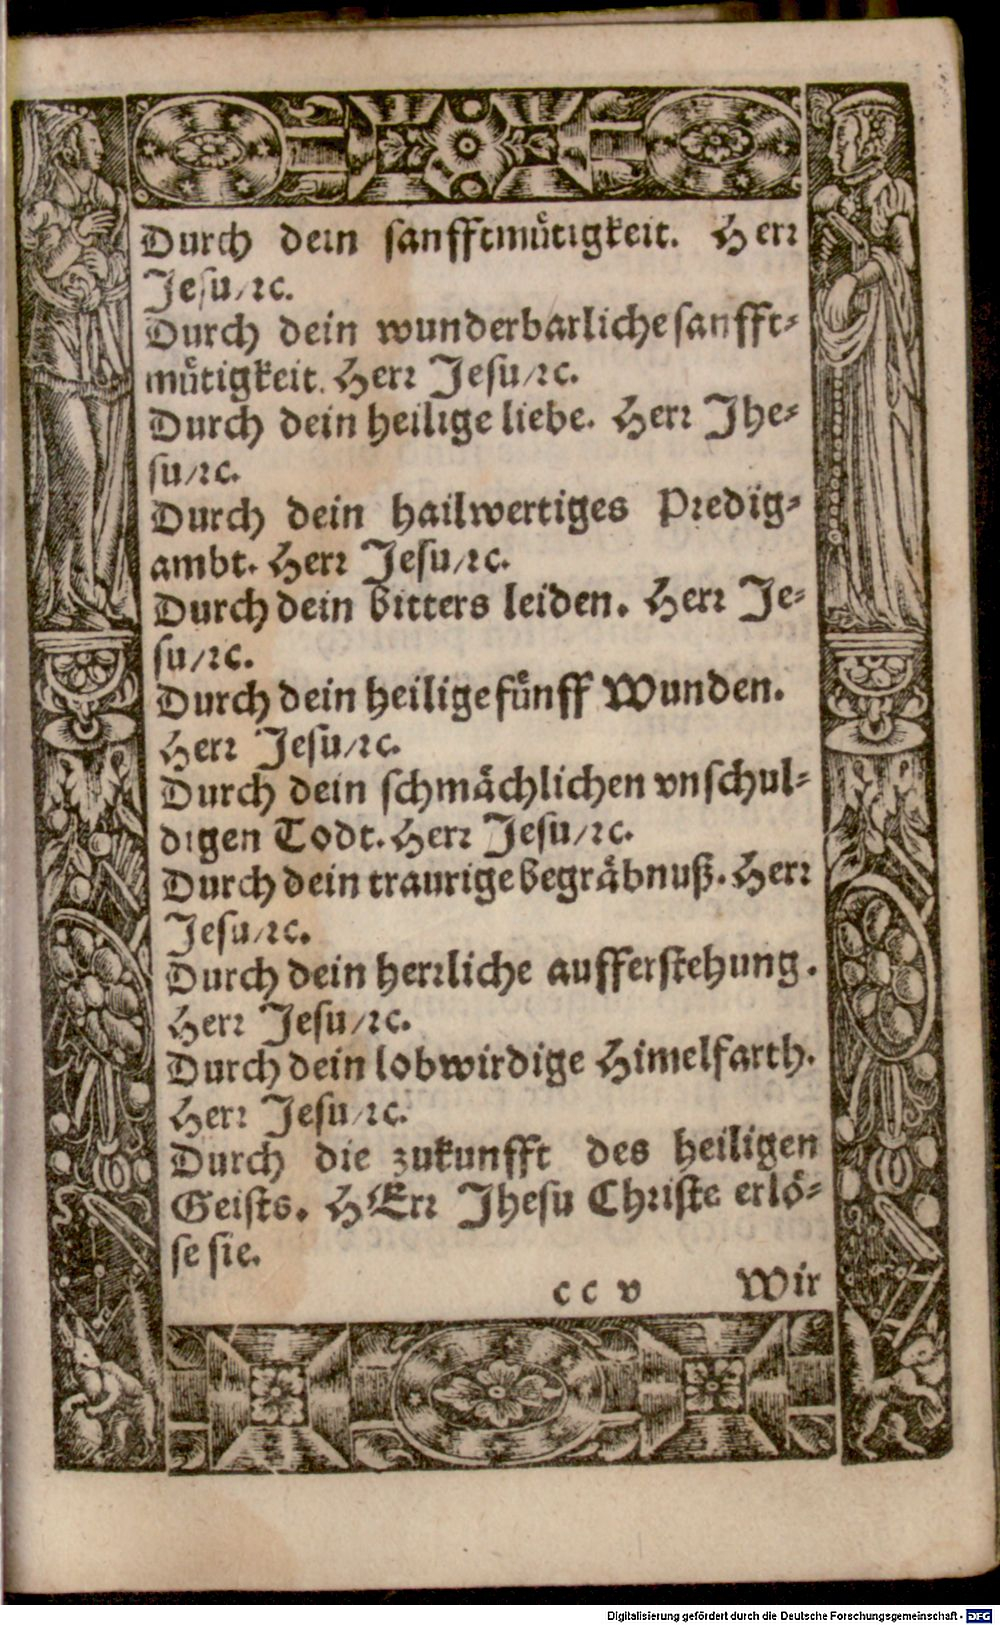 Durch dein sanfftmuͤtigkeit. Herꝛ
Jesu/ꝛc.
Durch dein wunderbarliche sanfft-
muͤtigkeit. Herꝛ Jesu/ꝛc.
Durch dein heilige liebe. Herꝛ Jhe-
su/ꝛc.
Durch dein hailwertiges Pꝛedig-
ambt. Herꝛ Jesu/ꝛc.
Durch dein bitters leiden. Herꝛ Je-
su/ꝛc.
Durch dein heilige fuͤnff Wunden.
Herꝛ Jesu/ꝛc.
Durch dein schmaͤchlichen vnschul-
digen Todt. Herꝛ Jesu/ꝛc.
Durch dein traurige begraͤbnuß. Herꝛ
Jesu/ꝛc.
Durch dein herꝛliche aufferstehung.
Herꝛ Jesu/ꝛc.
Durch dein lobwirdige Himelfarth.
Herꝛ Jesu/ꝛc.
Durch die zukunfft des heiligen
Geists. HErꝛ Jhesu Chꝛiste erloͤ-
se sie.
c c v Wir
Digitalisierung gefördert durch die Deutsche Forschungsgemeinschaft - DFG